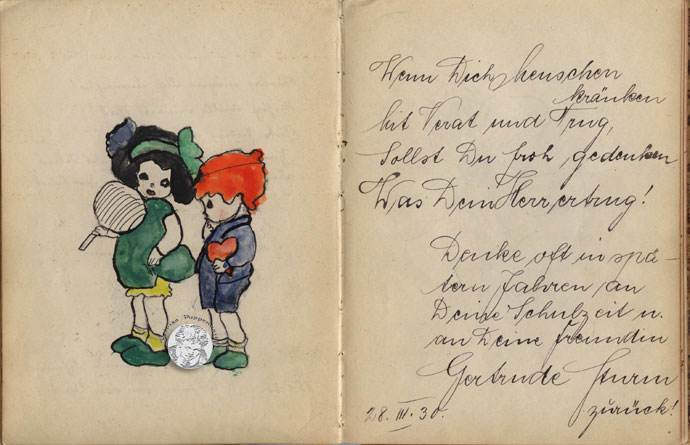 Wenn Dich Menschen
kränken
Mit Verat und Trug,
Sollst Du froh gedenken
Was Dein Herr ertrug!
Denke oft in spä-
tern Jahren an
Deine Schulzeit u.
an Deine Freundin
Gertrude Sturm
28. III. 30. zurück!